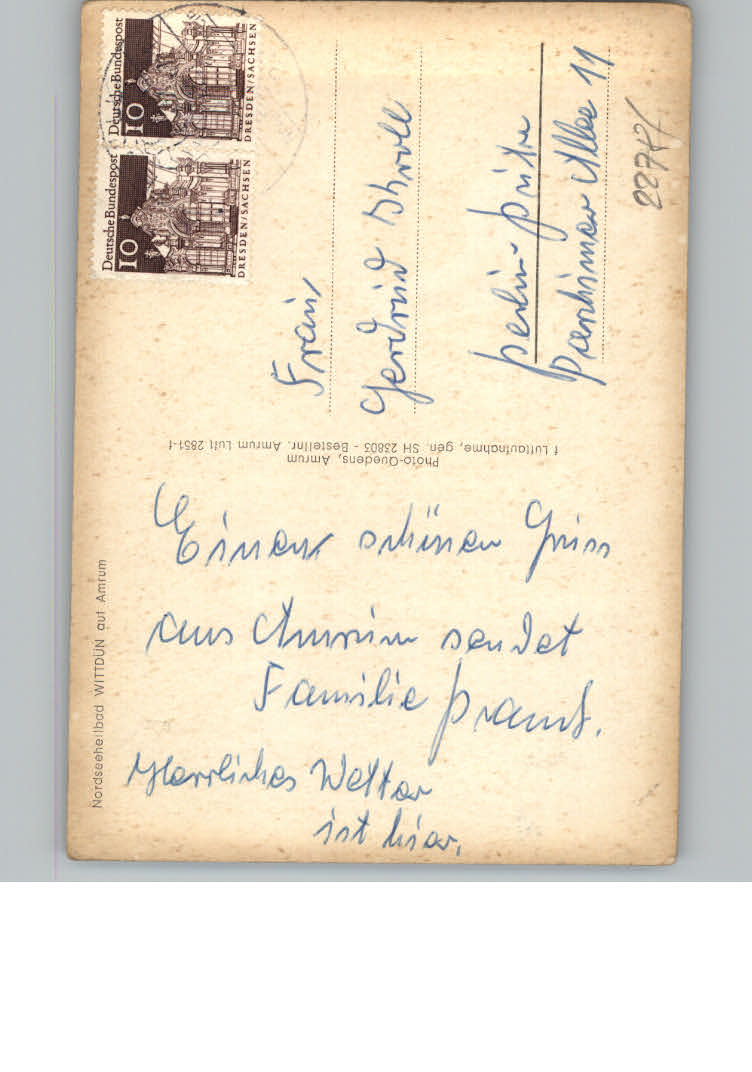 Nordseeheilbad WITTDÜN auf Amrum
Einen schönen Gruss
aus Amrum sendet
Familie
Herrliches Wetter
ist hier.
Photo-Quedens, Amrum
f Luftaufnahme, gen. SH 23803 - Bestellnr. Amrum Luft 2851-f
Deutsche Bundespost
10
DRESDEN/SACHSEN
Deutsche Bundespost
10
DRESDEN/SACHSEN
Frau
Gertrud
Berlin-Britz
Parchimer Allee 11